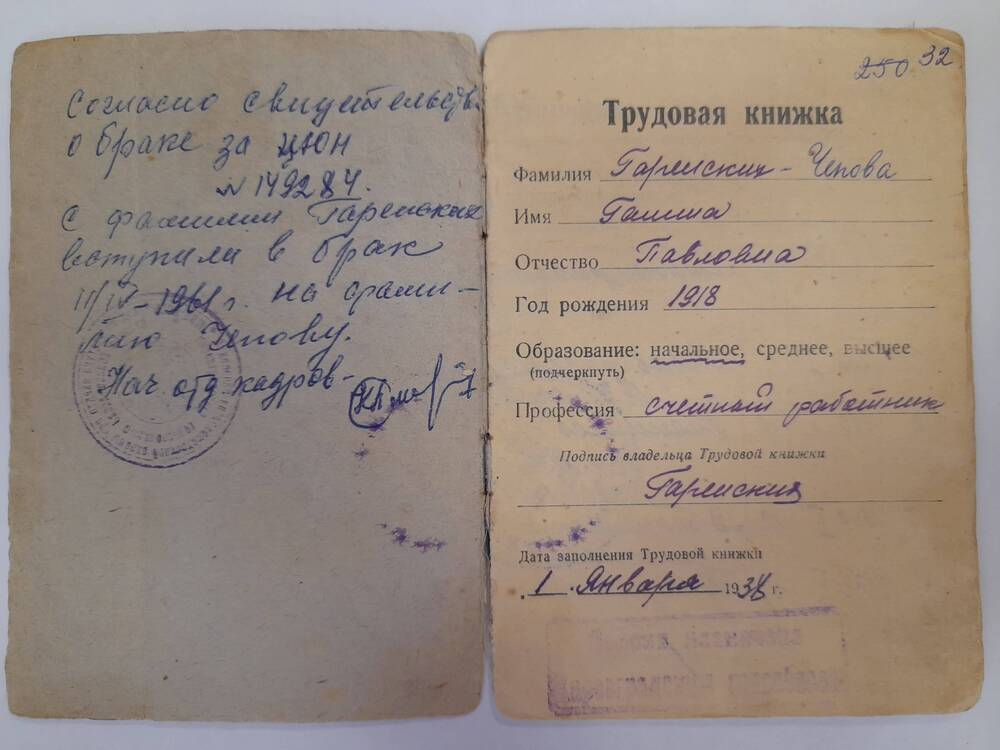 Согласно свидетельств
о браке за ЦЮН
N 149284.
с фамилии Гарейских
вступили в брак
11/IV-1961 г. на фами-
лию Чепову.
Нач. отд. кадров-
250 32
Трудовая книжка
Фамилия Гарейских - Чепова
Имя Галина
Отчество Павловна
Год рождения 1918
Образование: начальное, среднее, высшее
(подчеркнуть)
Профессия счетный работник
Подпись владельца Трудовой книжки
Гарейских
Дата заполнения Трудовой книжки
1 января 1938 г.